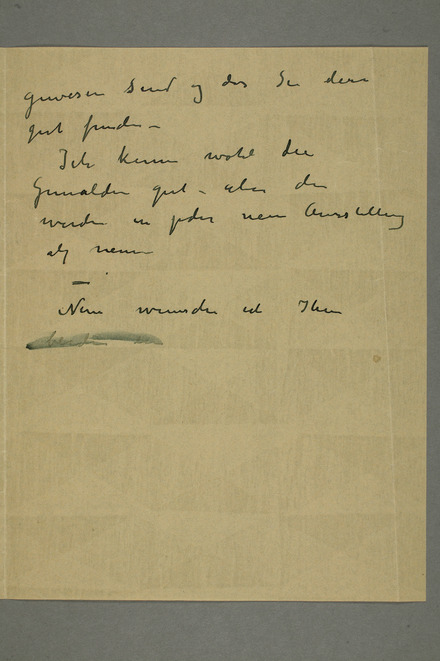 gewesen sind og das Sie dera
gut finden –
Ich kenne wohl die
Gemälden gut – aber die
werden in jeder neue Ausstellung
als neue
Nun wünsche ich Ihnen